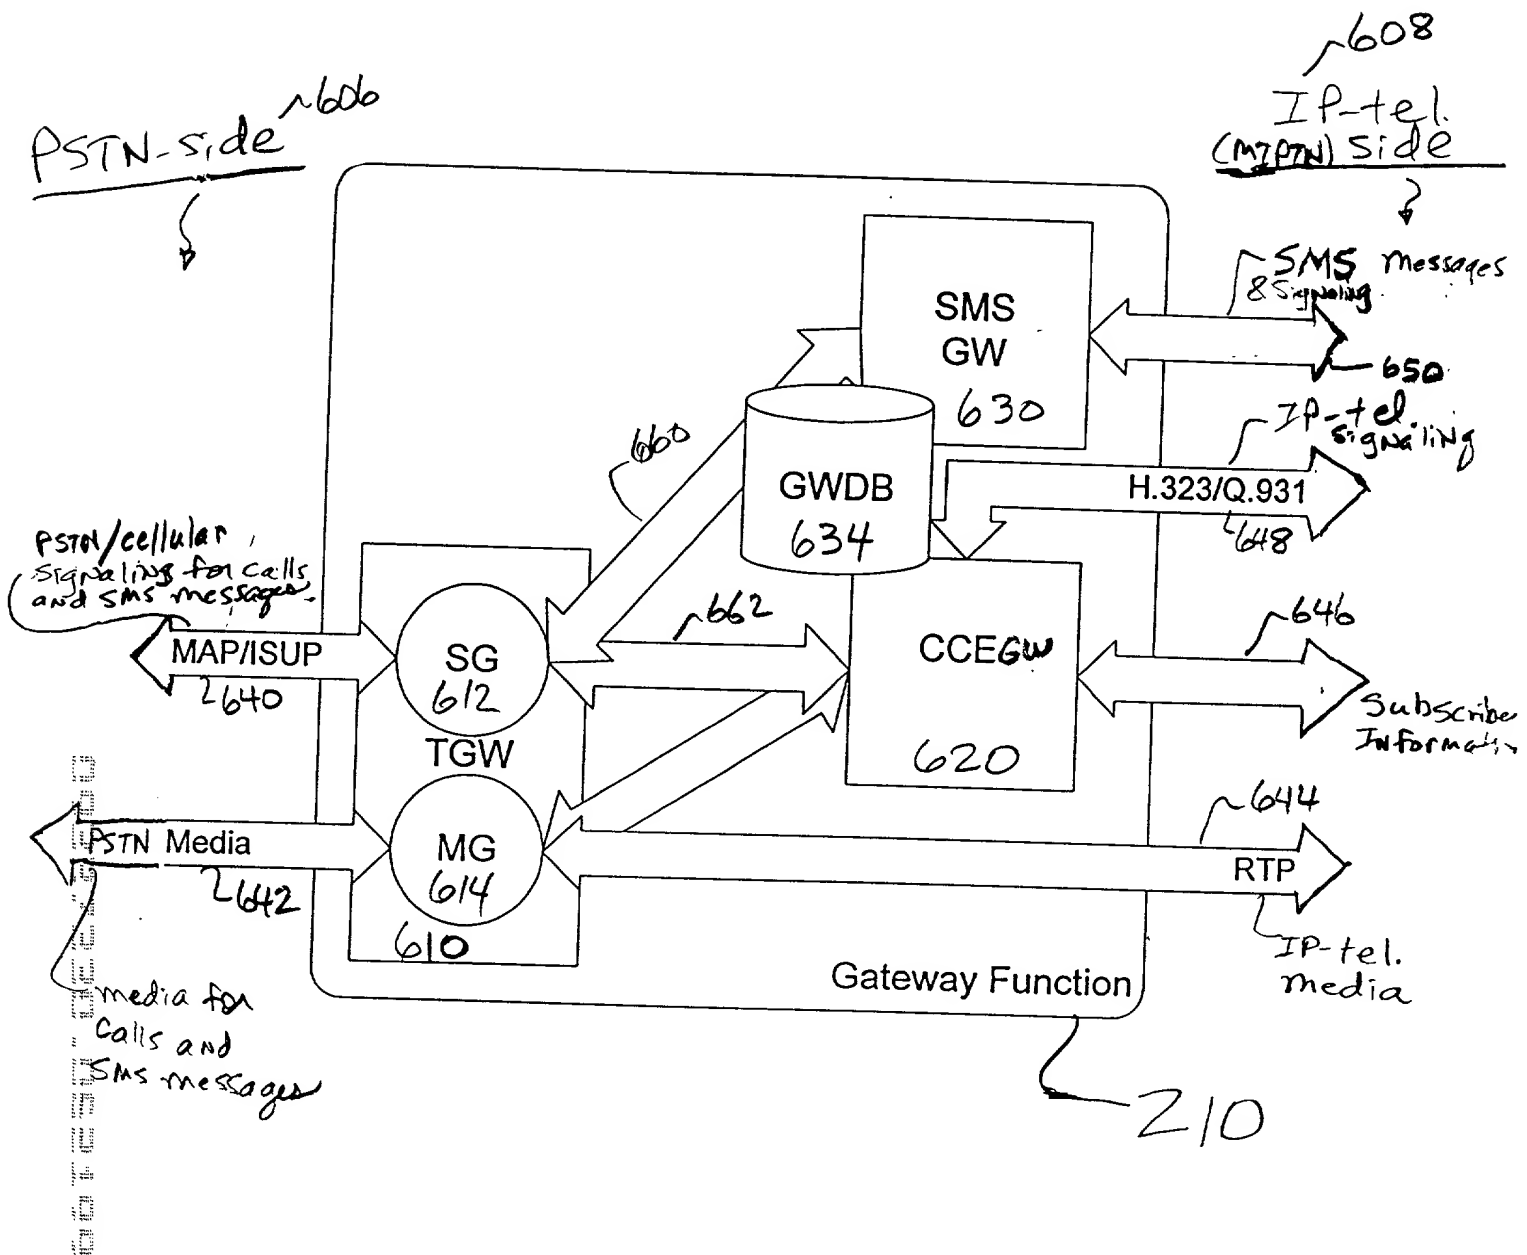 608
IP-tel.
(MIPTN) side
606
PSTN-side
SMS messages
& Signaling
650
SMS
GW
630
IP-tel.
Signaling
660
GWDB
634
H.323/Q.931
648
PSTN/cellular
signaling for calls
and SMS messages.
MAP/ISUP
640
SG
612
TGW
662
CCEGW
620
646
Subscribe
Informati
PSTN Media
642
MG
614
610
644
RTP
IP-tel.
media
Gateway Function
media for
calls and
SMS messages
210